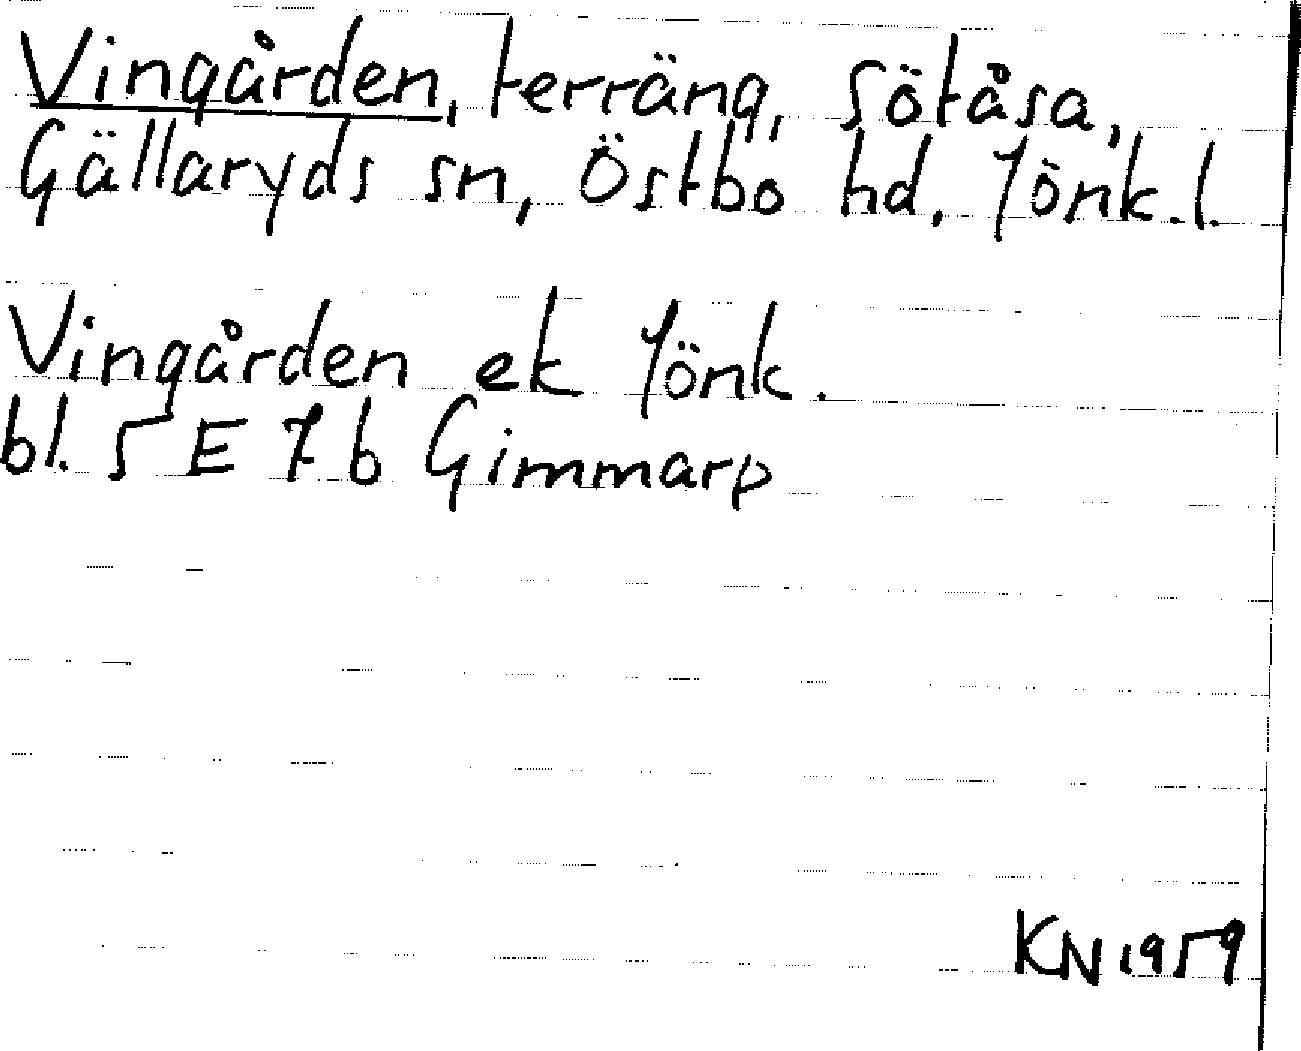 Vingården, terräng, Sötåsa,
Gällaryds sn, Östbo hd, Jönk.l.
Vingården ek Jönk.
bl. 5 E 7 b Gimmarp
KN 1959